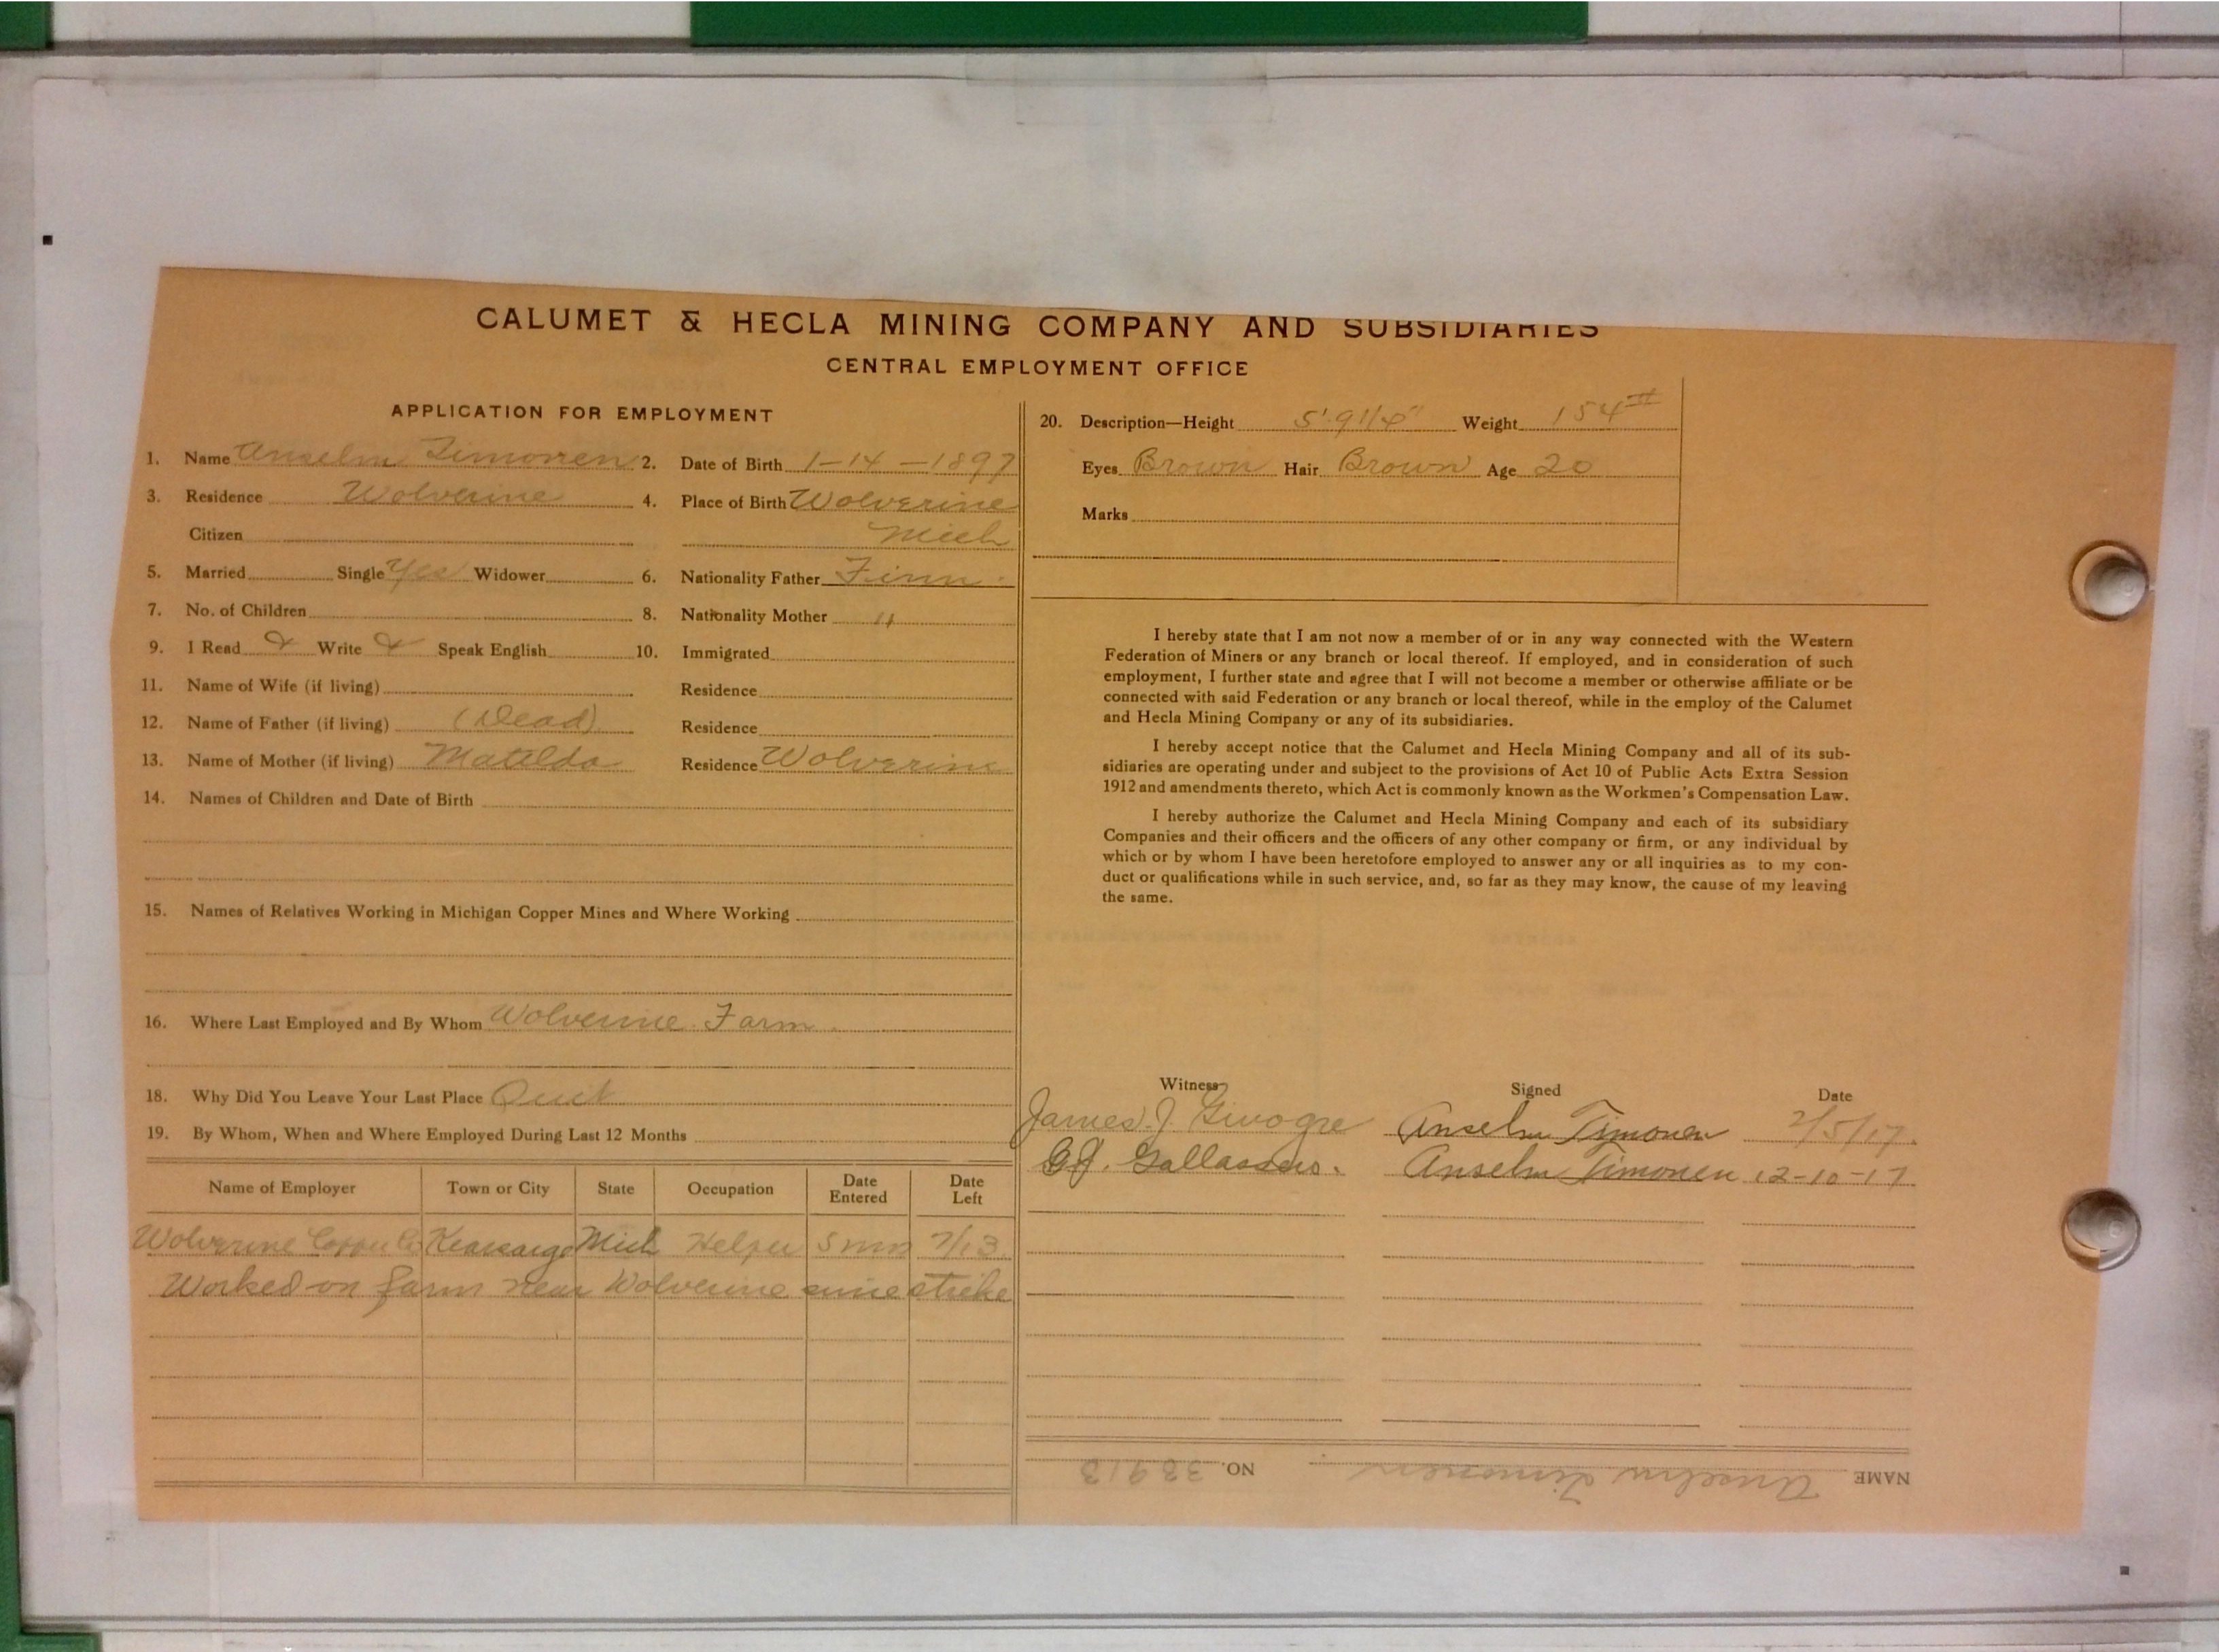 CALUMET & HECLA MINING COMPANY AND SUBSIDIARIES
CENTRAL EMPLOYMENT OFFICE
APPLICATION FOR EMPLOYMENT
1. Name Anselm Timonen 2. Date of Birth 1-14-1897
3. Residence Wolverine 4. Place of Birth Wolverine
Citizen Mich
5. Married Single Yes Widower 6. Nationality Father Finn.
7. No. of Children 8. Nationality Mother "
9. I Read & Write & Speak English 10. Immigrated
11. Name of Wife (if living) Residence
12. Name of Father (if living) (Dead) Residence
13. Name of Mother (if living) Matilda Residence Wolverine
14. Names of Children and Date of Birth
15. Names of Relatives Working in Michigan Copper Mines and Where Working
16. Where Last Employed and By Whom Wolverine Farm
18. Why Did You Leave Your Last Place Quit
19. By Whom, When and Where Employed During Last 12 Months
Name of Employer Town or City State Occupation Date Entered Date Left
Wolverine Copper Co Kearsarge Mich Helper 5 mos 7/13
Worked on farm near Wolverine since strike
20. Description—Height 5' 9 1/4" Weight 154#
Eyes Brown Hair Brown Age 20
Marks
I hereby state that I am not now a member of or in any way connected with the Western
Federation of Miners or any branch or local thereof. If employed, and in consideration of such
employment, I further state and agree that I will not become a member or otherwise affiliate or be
connected with said Federation or any branch or local thereof, while in the employ of the Calumet
and Hecla Mining Company or any of its subsidiaries.
I hereby accept notice that the Calumet and Hecla Mining Company and all of its sub-
sidiaries are operating under and subject to the provisions of Act 10 of Public Acts Extra Session
1912 and amendments thereto, which Act is commonly known as the Workmen's Compensation Law.
I hereby authorize the Calumet and Hecla Mining Company and each of its subsidiary
Companies and their officers and the officers of any other company or firm, or any individual by
which or by whom I have been heretofore employed to answer any or all inquiries as to my con-
duct or qualifications while in such service, and, so far as they may know, the cause of my leaving
the same.
Witness Signed Date
James J. Anselm Timonen 2/5/17.
Anselm Timonen 12-10-17
NAME Anselm Timonen NO. 33913